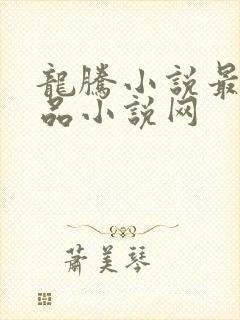 龍騰小説最
品小説网
蕭美琴